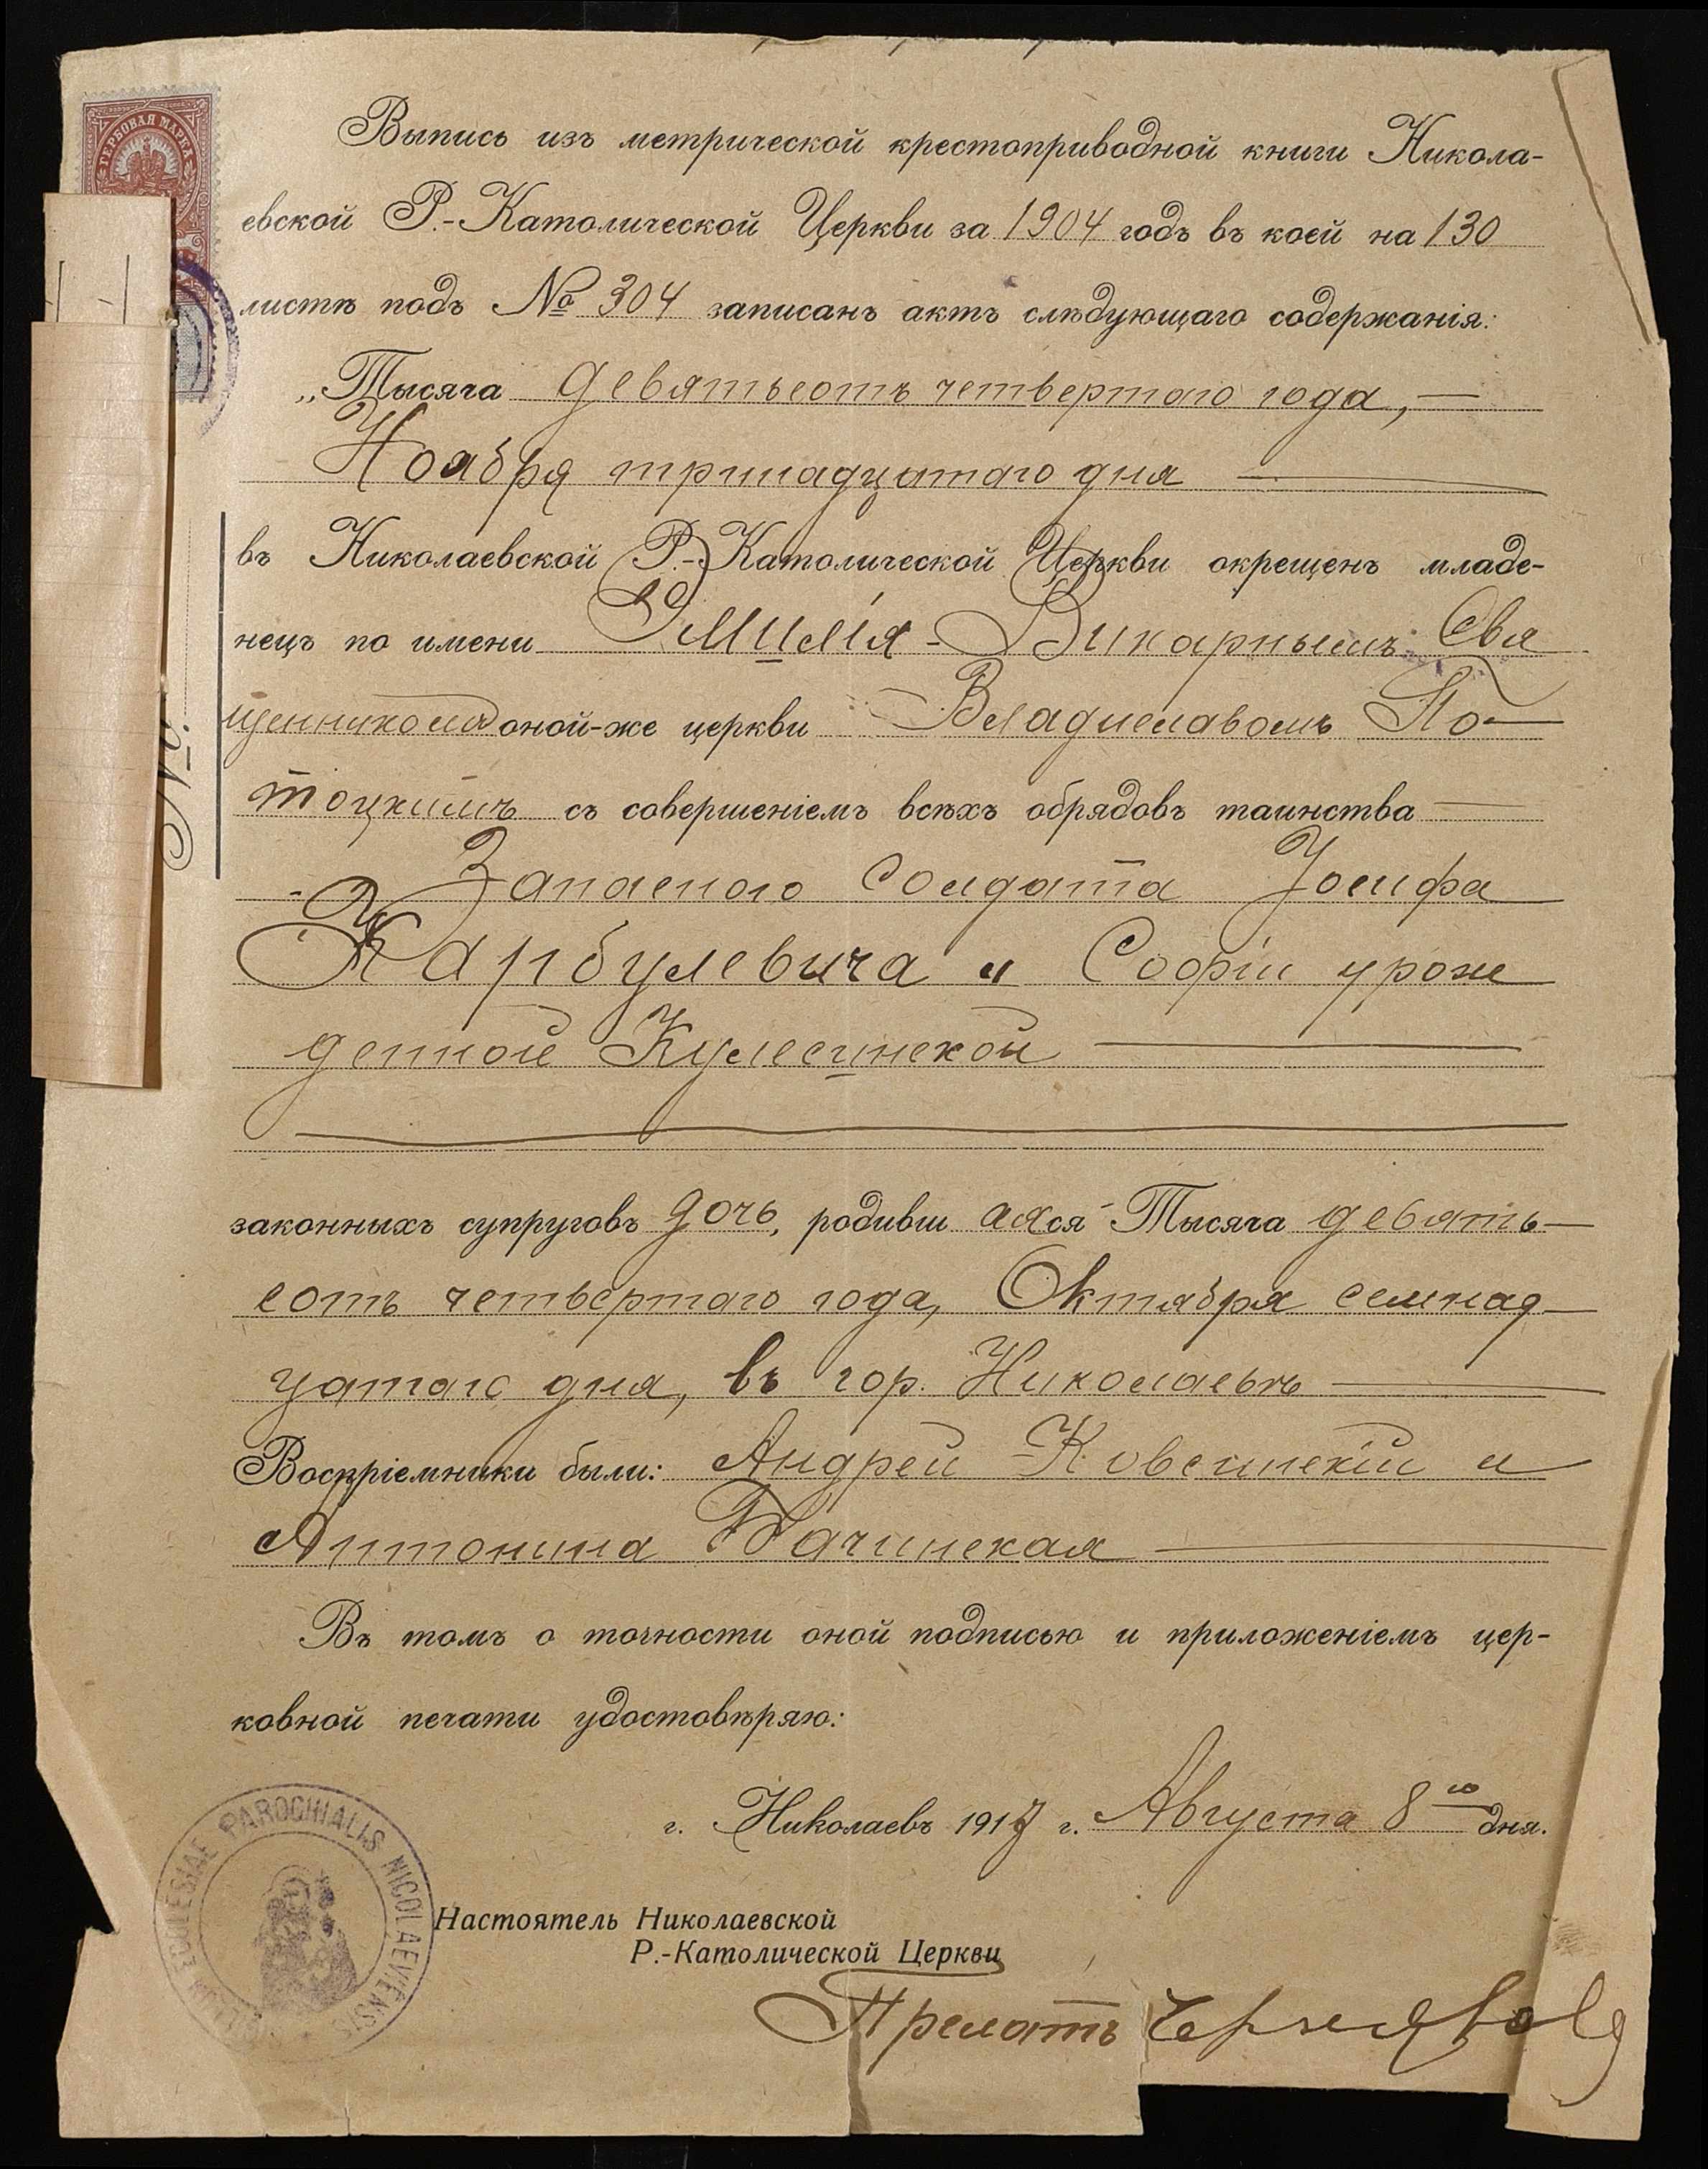 ГЕРБОВАЯ МАРКА
Выпись изъ метрической крестоприводной книги Никола-
евской Р.-Католической Церкви за 1904 годъ въ коей на 130
листѣ подъ № 304 записанъ актъ слѣдующаго содержанія:
„Тысяча девятьсотъ четвертаго года, —
Ноября тринадцатаго дня —
въ Николаевской Р.-Католической Церкви окрещенъ младе-
нецъ по имени Эмилія - Викарнымъ Свя
щенникомъ оной-же церкви Владиславомъ По-
тоцкимъ съ совершеніемъ всѣхъ обрядовъ таинства —
Запаснаго Солдата Іосифа
Карбулевича и Софіи урож
денной Кулесинской —
законныхъ супруговъ дочь, родивш аяся Тысяча девять-
сотъ четвертаго года, Октября семнад-
цатаго дня, въ гор. Николаевѣ —
Воспріемники были: Андрей Ковсинскій и
Антонина Бачинская —
Въ томъ о точности оной подписью и приложеніемъ цер-
ковной печати удостовѣряю:
г. Николаевъ 1917 г. Августа 8 го дня.
ECCLESIAE PAROCHIALIS NICOLAEVIENSIS
Настоятель Николаевской
Р.-Католической Церкви
Прелатъ